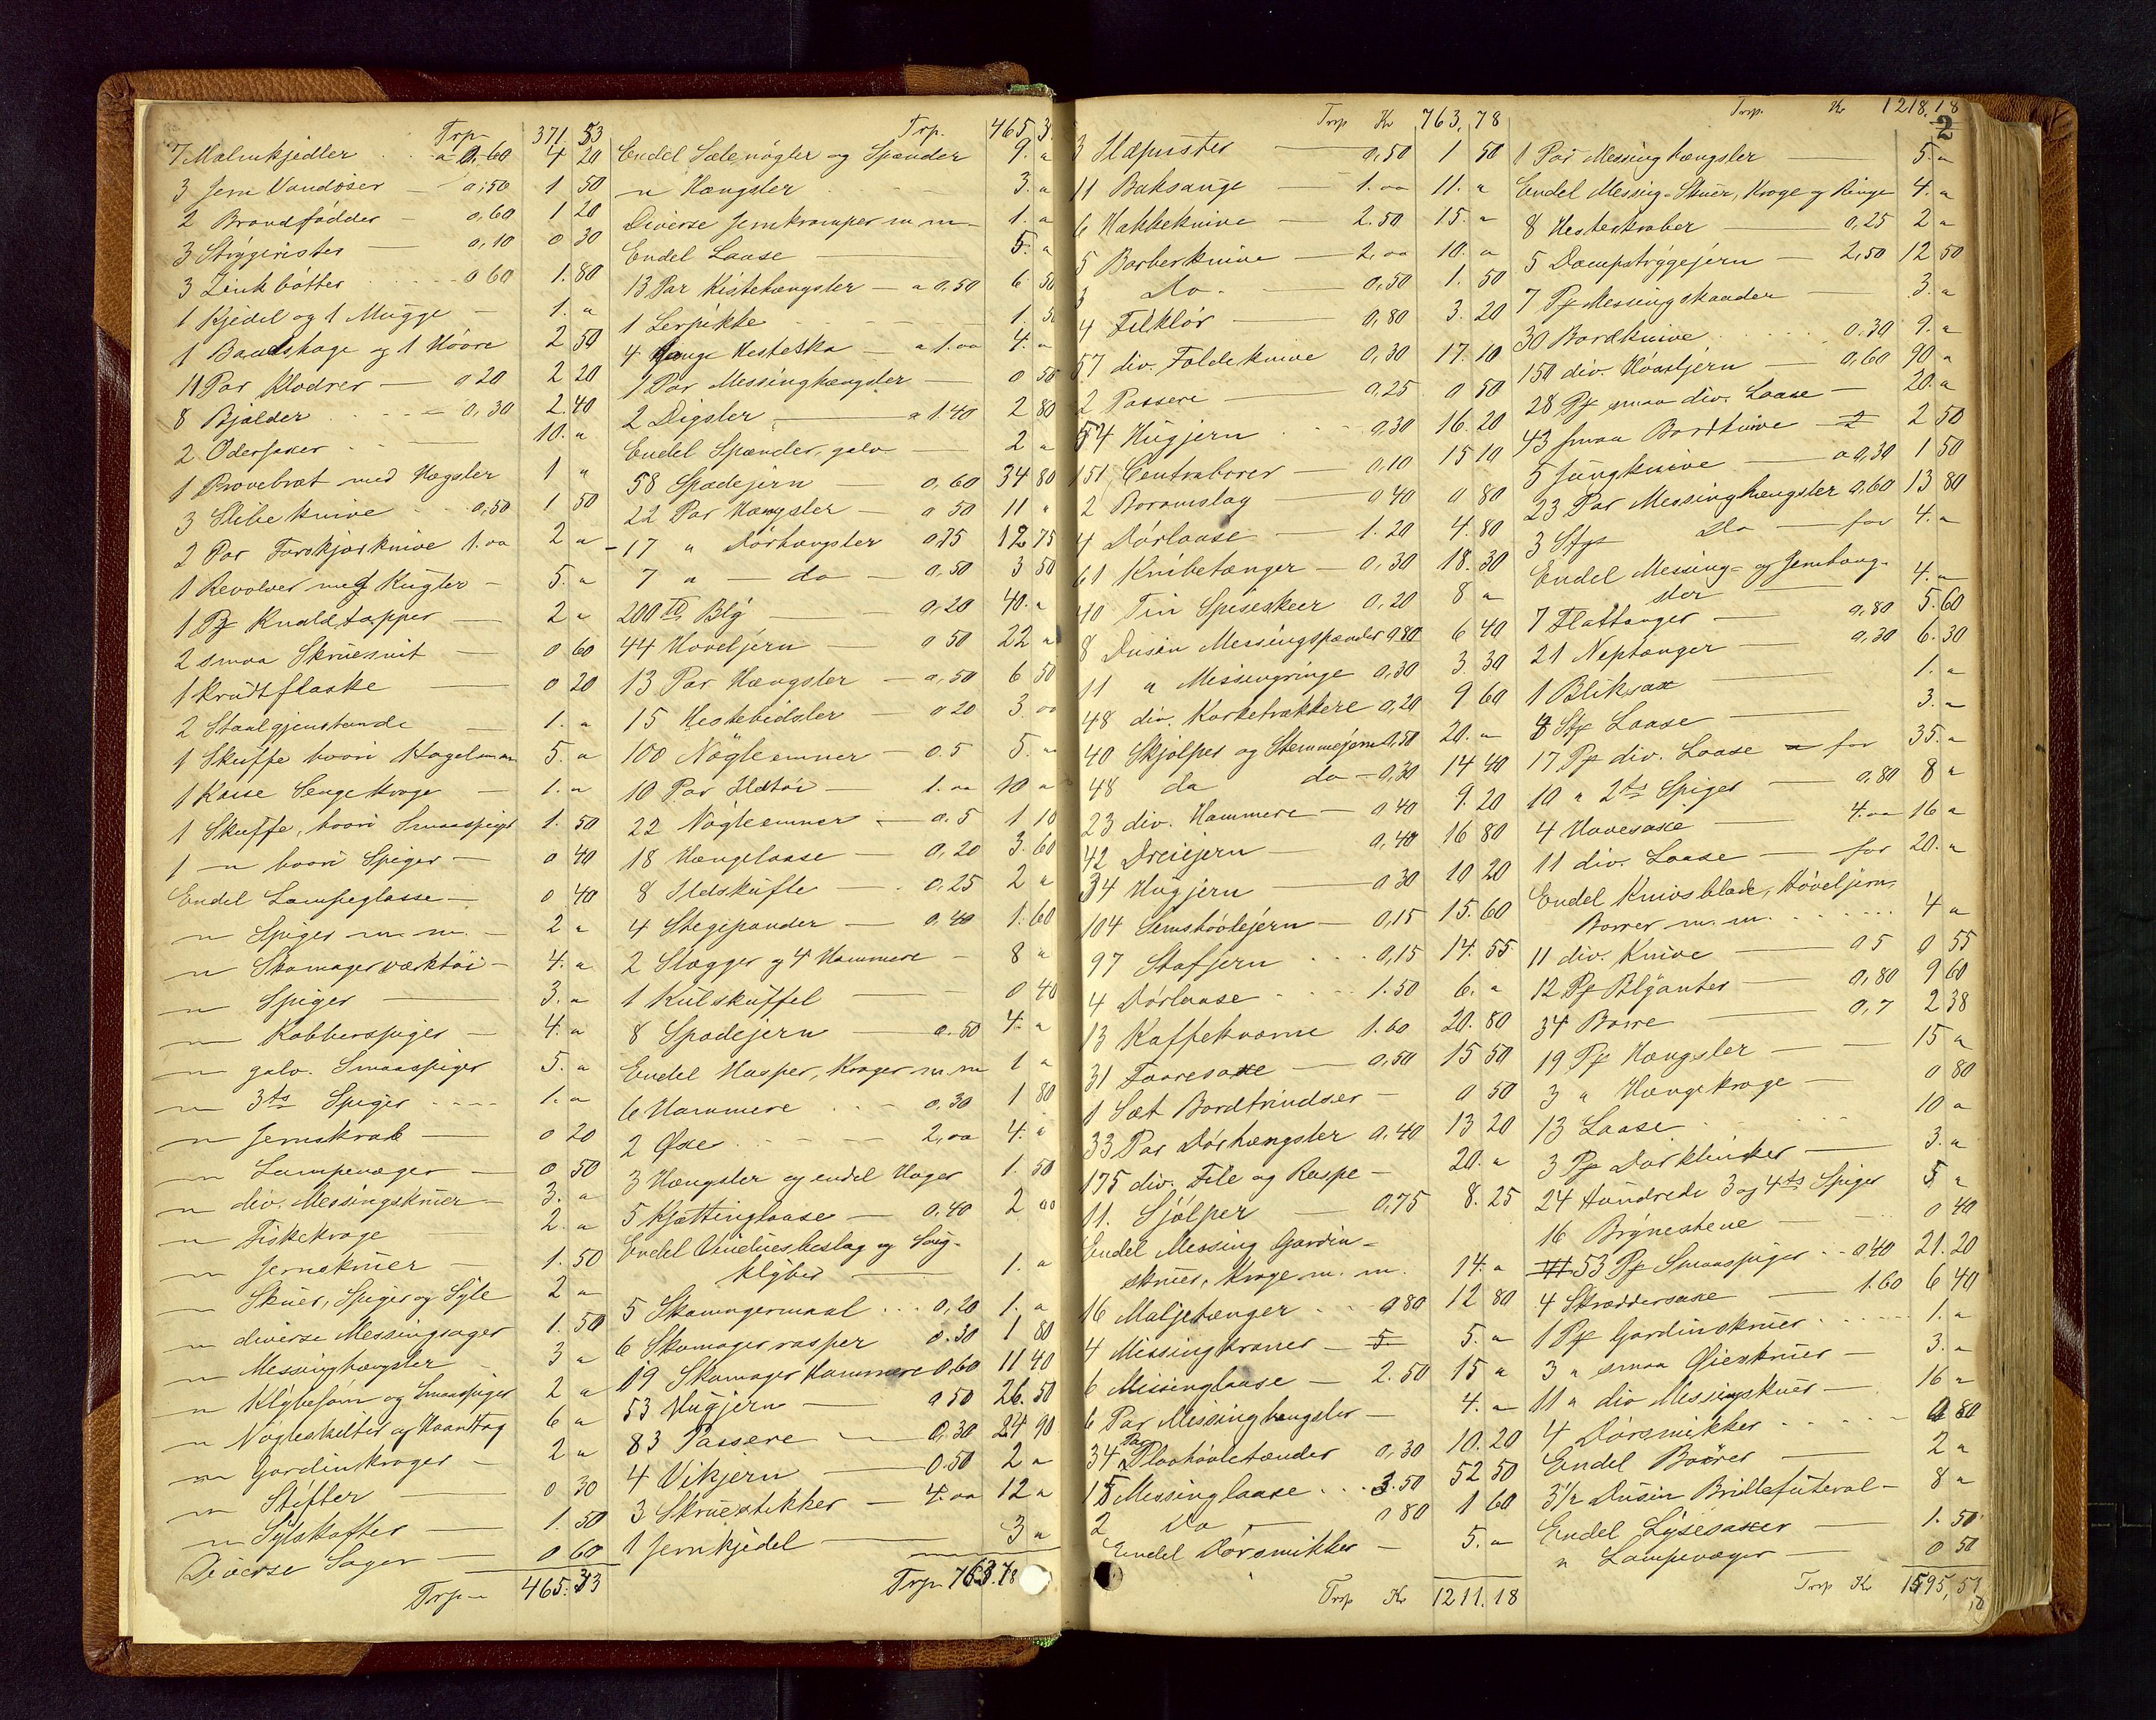 Trp. 371 53
7 Malmkjedler a 0.60 4 20
3 Jern Vandøser - 0,50 1 50
2 Brandfødder - 0,60 1 20
3 Strygerister - 0,10 0 30
3 Zinkbøtter 0 60 1.80
1 Kjedel og 1 Mugge - 1. "
1 Baadshage og 1 2 50
11 Par Klodrer - 0 20 2 20
8 Bjelder - 0,30 2.40
2 Odersaxer 10. "
1 Prøvebræt med Hægsler 1 "
3 Slibeknive 0,50 1 50
2 Par Forskjærknive 1.00 2 "
1 Revolver med Kugler - 5. "
1 Pk Knaldtapper - 2 "
2 smaa Skruesnit - 0 60
1 Krudtflaske - 0 20
2 Staalgjenstande - 1. "
1 Skuffe hvori Hagel m m 5. "
1 Kasse Sengekroge - 1. "
1 Skuffe, hvori Smaaspiger 1. 50
1 - " hvori Spiger - 0 40
Endel Lampeglasse - 0 40
-"- Spiger m. m. - 2 "
-"- Skomagerværktøi - 4. "
-"- Spiger - 3. "
-"- Kobberspiger - 4. "
-"- galv. Smaaspiger 5. "
-"- 3ts Spiger 1. "
-"- Jernskrab - 0 20
-"- Lampevæger - 0 50
-"- div. Messingskruer - 3. "
-"- Fiskekroge - 2. "
-"- Jernskruer - 1. 50
-"- Skruer, Spiger og Syle 2 "
-"- diverse Messingsager 1. 50
-"- Messinghængsler 3 "
-"- Klybesøm og Smaaspiger 2 "
-"- Nøgleskilter og Haandtag 6 "
-"- Gardinkroger - 2 "
-"- Stifter - 0 30
-"- Sylskafter - 1. 50
Diverse Sager - 0 60
Trp - 465.33
Trp. 465 3
Endel Sælenøgler og Spænder 9. "
-"- Hængsler 3. "
Diverse Jernkramper m m - 1. "
Endel Laase - 5. "
13 Par Kistehængsler - a 0,50 6 50
1 Lerpikke 1. 50
4 Gange Hestesko - a 1.00 4. "
1 Par Messinghængsler 0 50
2 Digsler a 1.40 2 80
Endel Spænder, galv. - 2 "
58 Spadejern - 0,60 34 80
22 Par Hængsler - 0 50 11 "
- 17 " Dørhængsler 0.75 12 75
7 " - do - 0,50 3 50
200 tt Bly - 0,20 40. "
44 Høveljern - 0 50 22 "
13 Par Hængsler - 0,50 6 50
15 Hestebidsler - 0 20 3. 00
100 Nøgleemner - 0.5 5. "
10 Par Ildtøi - 1. 00 10 "
22 Nøgleemner - 0.5 1 10
18 Hængelaase - 0,20 3. 60
8 Ildskufle - 0,25 2 "
4 Stegepander - 0,40 1. 60
2 Slægger og 4 Hammere - 8 "
1 Kulskuffel - 0 40
8 Spadejern - 0.50 4. "
Endel Hasper, Kroger m m 1 "
6 Hammere - 0,30 1 80
2 Øxe 2,00 4. "
3 Hængsler og endel Hager 1. 50
5 Kjættinglaase - 0.40 2 00
Endel Vinduesbeslag og
Klyber - 1. "
5 Skomagermaal 0,20 1. "
6 Skomagerrasper 0.30 1 80
19 Skomagerhammere 0,60 11 40
53 Hugjern - 0 50 26. 50
83 Passere - 0,30 24 90
4 Vikjern - 0.50 2 "
3 Skruestikker - 4.00 12 "
1 Jernkjedel - 3 "
Trp - 763.78
Trsp Kr 763, 78
3 Hæpuster - 0,50 1 50
11 Baksauge - 1.00 11. "
6 Hakkeknive - 2.50 15. "
5 Barberknive - 2,00 10. "
3 Do. - 0,50 1. 50
4 Filklør - 0,80 3. 20
57 div. Foldeknive 0,30 17. 10
2 Passere - 0,25 0 50
54 Hugjern 0,30 16. 20
151 Centraborer - 0,10 15 10
2 Boromslag 0 40 0 80
4 Dørlaase - 1. 20 4. 80
61 Knibetænger - 0,30 18. 30
40 Tin Spiseskeer 0,20 8 "
8 Dusin Messingspænder 0,80 6 40
11 " Messingringe 0,30 3. 30
48 div. Korketrækkere 0,20 9 60
40 Skjølper og Stemmejern 0,50 20. "
48 do do - 0,30 14 40
23 div. Hammere - 0 40 9. 20
42 Dreiejern - 0,40 16 80
34 Hugjern - 0 30 10 20
104 Semshøvlejern - 0,15 15. 60
97 Stafjern 0,15 14. 55
4 Dørlaase 1. 50 6. "
13 Kaffekværne 1. 60 20. 80
31 Faaresaxe - 0,50 15 50
1 Sæt Bordtrindser - 0 50
33 Par Dørhængsler 0. 40 13 20
175 div. File og Raspe - 20. "
11. Sjølper - 0,75 8. 25
Endel Messing Gardin-
skruer, Kroge m. m. 14. "
16 Maljetænger 0 80 12 80
4 Messingkraner - 5 5. "
6 Messinglaase - 2. 50 15 "
6 Par Messinghængsler - 4. "
34 Par Plovhøvletænder 0,30 10. 20
15 Messinglaase 3. 50 52 50
2 Do, - 0 80 1 60
Endel Dørsmikker - 5. "
Trsp Kr 1211. 18
Trsp. Kr 1218. 18
2
1 Par Messinghængsler - 5. "
Endel Messing-Skruer, Kroge og Ringe 4. "
8 Hesteskraber - 0,25 2 "
5 Dampstrygejern - 2,50 12 50
7 Pk Messingskaader - 3. "
30 Bordknive 0. 30 9. "
150 div. Høveljern - 0,60 90 "
28 Pk smaa div. Laase - 20. "
43 smaa Bordknive - 2 2 50
5 Jungknive - a 0,30 1 50
23 Par Messinghængsler 0,60 13 80
3 Stk Do - for 4. "
Endel Messing- og Jernhæng-
sler - 4. "
7 Flattanger - 0,80 5. 60
21 Neptanger - 0,30 6. 30
1 Bliksax - 1. "
8 Stk Laase - 3. "
17 Pk div. Laase - for 35. "
10 " 2ts Spiger - 0,80 8 "
4 Havesaxe - 4.00 16 "
11 div. Laase - for 20. "
Endel Knivsblade, Høveljern,
Borrer m. m. 4 "
11 div. Knive - 0 5 0 55
12 Pk Blyanter - 0,80 9 60
34 Borre - 0,7 2 38
19 Pk Hængsler - 15 "
3 " Hængekroge - 0 80
13 Laase 10 "
3 Pk Dørklinker - 3. "
24 Hundrede 3 og 4ts Spiger 5. "
16 Brynestene - 0 40
53 Pk Smaaspiger 0,40 21. 20
4 Skræddersaxe - 1. 60 6 40
1 Pk Gardinskruer 1. "
3 " smaa Øieskruer - 3. "
11 " div Messingskruer - 16 "
4 Dørsmikker 0 80
Endel Boører - 2 "
3 1/2 Dusin Brillefuteral - 8 "
Endel Lysesaxer - 1. 50
" Lampevæger - 0 50
Trsp Kr 1595, 51